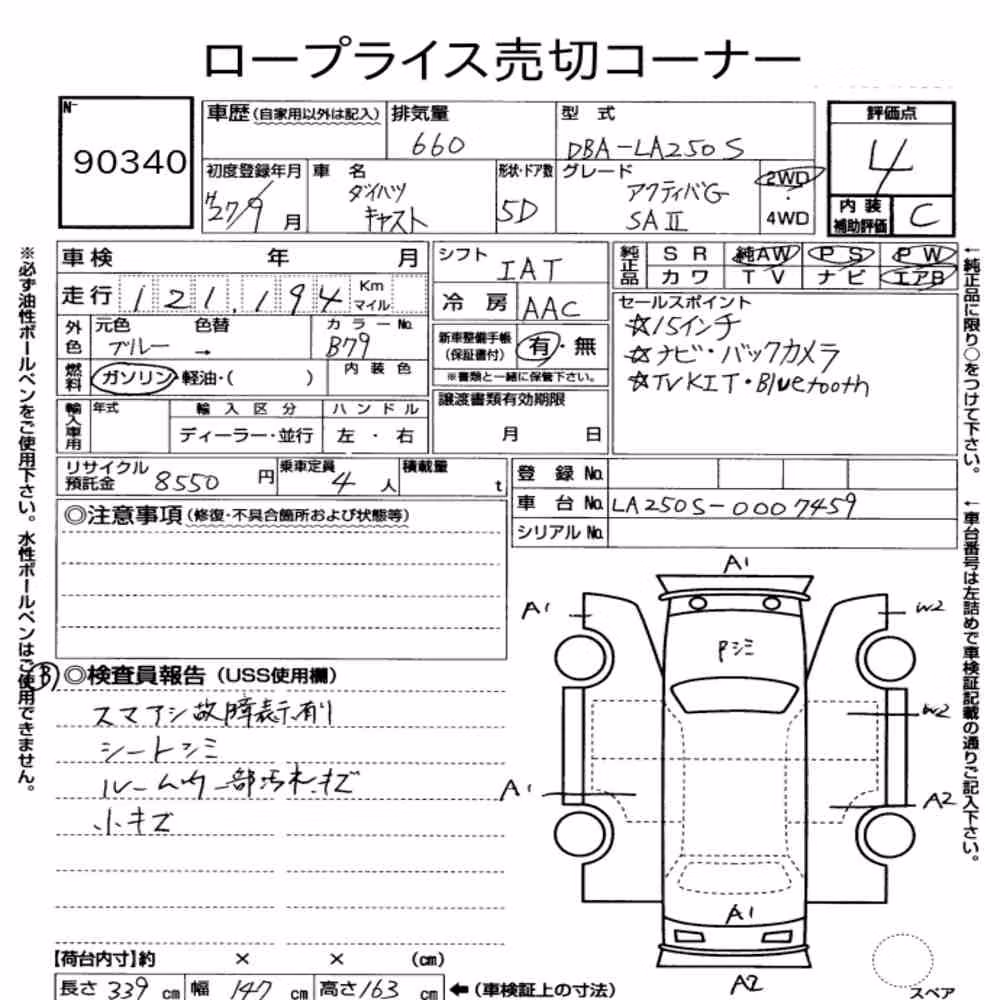 ロープライス売切コーナー
N-
90340
車歴 (自家用以外は記入)
排気量
660
型式
DBA-LA250S
評価点
4
初度登録年月
H27/9月
車名
ダイハツ
キャスト
形状・ドア数
5D
グレード
アクティバG
SAⅡ
2WD
4WD
内装
補助評価
C
車検 年 月
走行 121,194 Km
マイル
外色
元色 色替
ブルー →
カラーNo.
B79
燃料
ガソリン・軽油・( )
内装色
輸入車用
年式
輸入区分
ディーラー・並行
ハンドル
左・右
シフト
IAT
冷房
AAC
新車整備手帳
(保証書付)
有・無
※書類と一緒に保管下さい。
譲渡書類有効期限
月 日
純正品
SR 純AW PS PW
カワ TV ナビ エアB
セールスポイント
☆15インチ
☆ナビ・バックカメラ
☆TVKIT・Bluetooth
リサイクル
預託金
8550円
乗車定員
4人
積載量
t
登録No.
車台No. LA250S-0007459
シリアルNo.
◎注意事項 (修復・不具合箇所および状態等)
B
◎検査員報告 (USS使用欄)
スマアシ故障表示有り
シートシミ
ルーム内一部汚れ・キズ
小キズ
【荷台内寸】約 × × (cm)
長さ 339 cm 幅 147 cm 高さ 163 cm
←(車検証上の寸法)
A1
A1
W2
Pシミ
W2
A1
A2
A1
A2
スペア
※必ず油性ボールペンをご使用下さい。水性ボールペンはご使用できません。
←純正品に限り○をつけて下さい。
←車台番号は左詰めで車検証記載の通りご記入下さい。